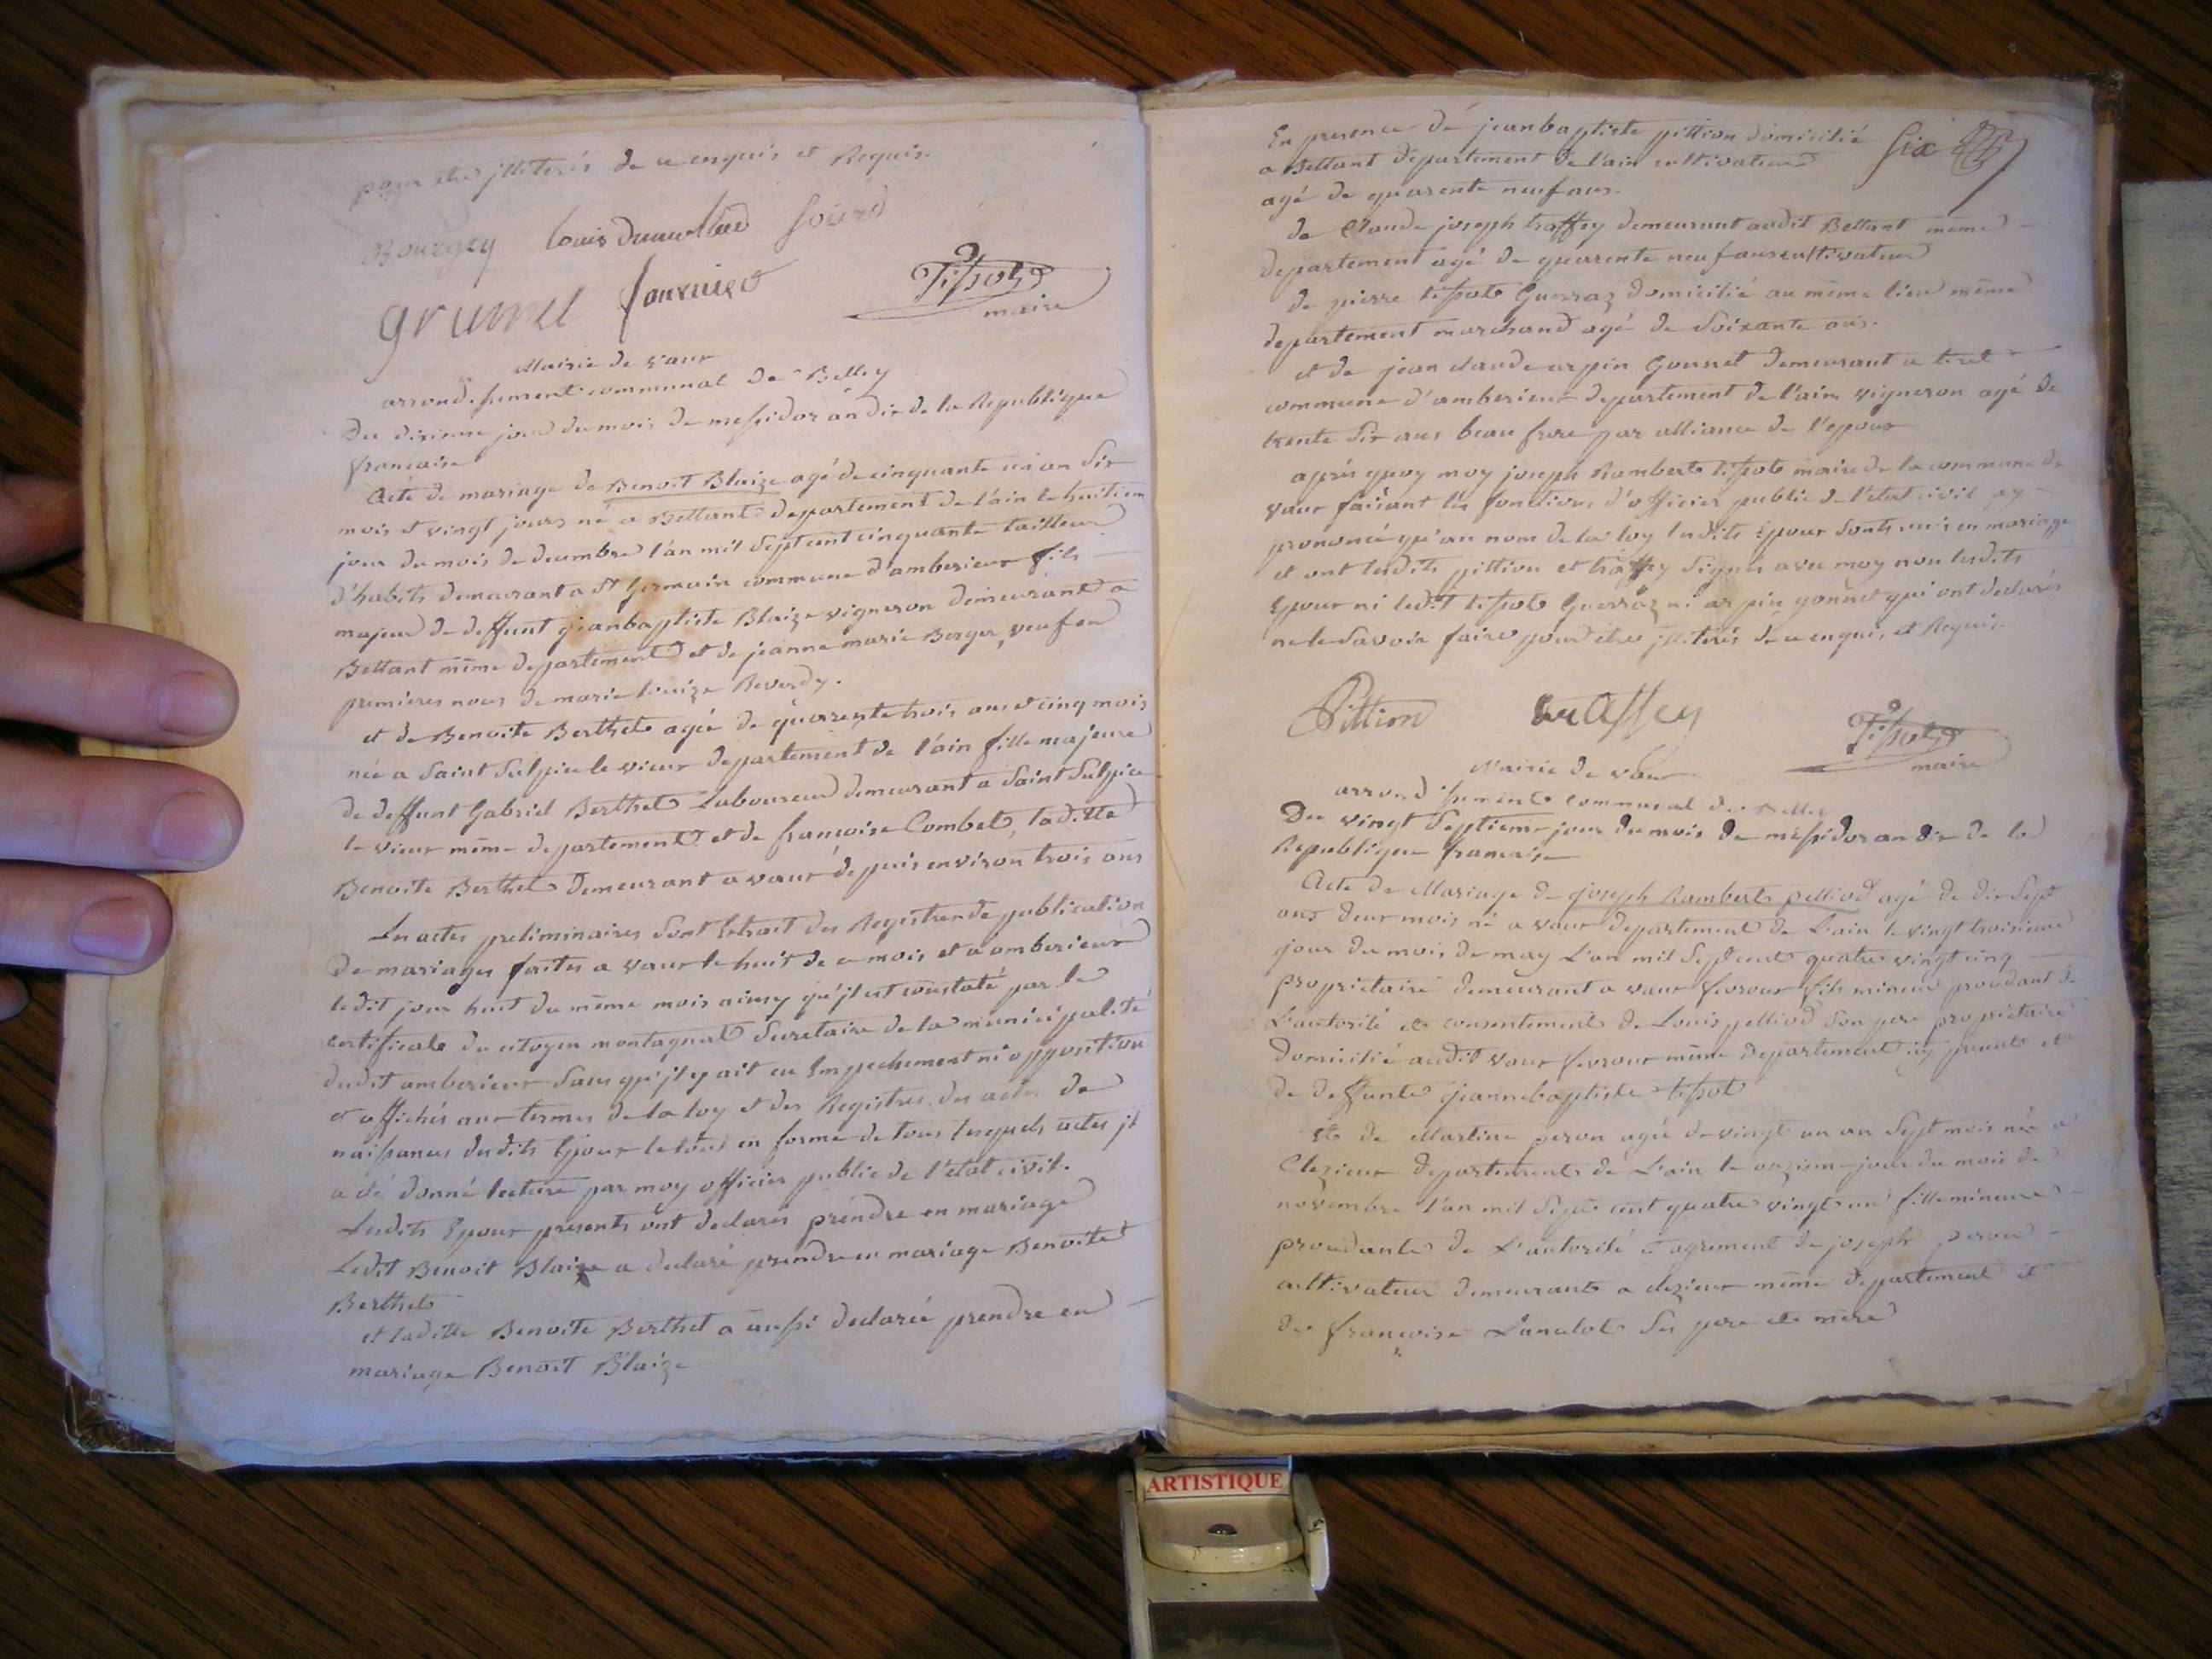 pour etre jlliterés de ce enquis et Requis.
Bourgey louis dumollard Sourd
grumel fournier
Tissot
maire
Mairie de vaux
arrondissement communal de Belley
Du dixieme jour du mois de messidor an dix de la Republique
francaise
Acte de mariage de Benoit Blaize agé de cinquante un an six
mois et vingt jours né a Bettant departement de l'ain le huitieme
jour du mois de decembre l'an mil sept cent cinquante tailleur
d'habits demeurant a St Germain commune d'amberieux fils
majeur de deffunt jeanbaptiste Blaize vigneron demeurant a
Bettant même departement et de jeanne marie Berger, veuf en
premieres noces de marie louize Reverdy.
et de Benoite Berthet agée de quarente trois ans et cinq mois
née a Saint Sulpice le vieux departement de l'ain fille majeure
de deffunt Gabriel Berthet Laboureur demeurant a Saint Sulpice
le vieux même departement et de françoise Combet, laditte
Benoite Berthet demeurant a vaux depuis environ trois ans
Les actes preliminaires sont Extrait des Registres de publication
de mariages faites a vaux le huit de ce mois et a amberieux
ledit jour huit du même mois ainsy qu'jl est constaté par le
certificat du citoyen montagnat Secretaire de la municipalité
dudit amberieux sans qu'jl y ait eu Empechement ni opposition
et affichés aux termes de la loy et des Registres des actes de
naissances desdits Epoux le tout en forme de tous lesquels actes jl
a été donné lecture par moy officier public de l'etat civil.
Lesdits Epoux presents ont declarés prendre en mariage
Ledit Benoit Blaize a declaré prendre en mariage Benoite
Berthet
et laditte Benoite Berthet a aussi declarée prendre en
mariage Benoit Blaize
En presence de jeanbaptiste pittion domicilié
a Bettant departement de l'ain cultivateur
agé de quarente neuf ans.
Six
de Claude joseph traffey demeurant audit Bettant même
departement agé de quarente neuf ans cultivateur
de pierre tissot Guerraz domicilié au même lieu même
departement marchand agé de Soixante ans.
et de jean claude arpin Gonnet demeurant a tiret
commune d'amberieux departement de l'ain vigneron agé de
trente six ans beau frere par alliance de l'epoux
aprés quoy moy joseph Rambert tissot maire de la commune de
vaux faisant les fonctions d'officier public de l'etat civil ay
prononcé qu'au nom de la loy lesdits Epoux sont unis en mariage
et ont lesdits pittion et traffey signés avec moy non lesdits
Epoux ni ledit tissot Guerraz ni arpin gonnet qui ont declarés
ne le savoir faire pour etre jlliterés de ce enquis et Requis
Pittion traffey
Tissot
maire
Mairie de vaux
arrondissement communal de Belley
Du vingt Septieme jour du mois de messidor an dix de la
Republique francaise
Acte de Mariage de joseph Rambert pelliod agé de dix Sept
ans deux mois né a vaux departement de L'ain le vingt troisieme
jour du mois de may L'an mil Sept cent quatre vingt cinq
proprietaire demeurant a vaux fevroux fils mineur procedant de
L'autorité et consentement de Louis pelliod son pere proprietaire
domicilié audit vaux fevroux même departement icy present et
de deffunte jeannebaptiste tissot
et de Martine peron agée de vingt un an Sept mois née a
Clezieux departement de L'ain le onzieme jour du mois de
novembre l'an mil Sept cent quatre vingt un fille mineure
procedante de L'autorité et agrement de joseph peron
cultivateur demeurant a clezieux même departement et
de françoise Lancelot ses pere et mere
ARTISTIQUE